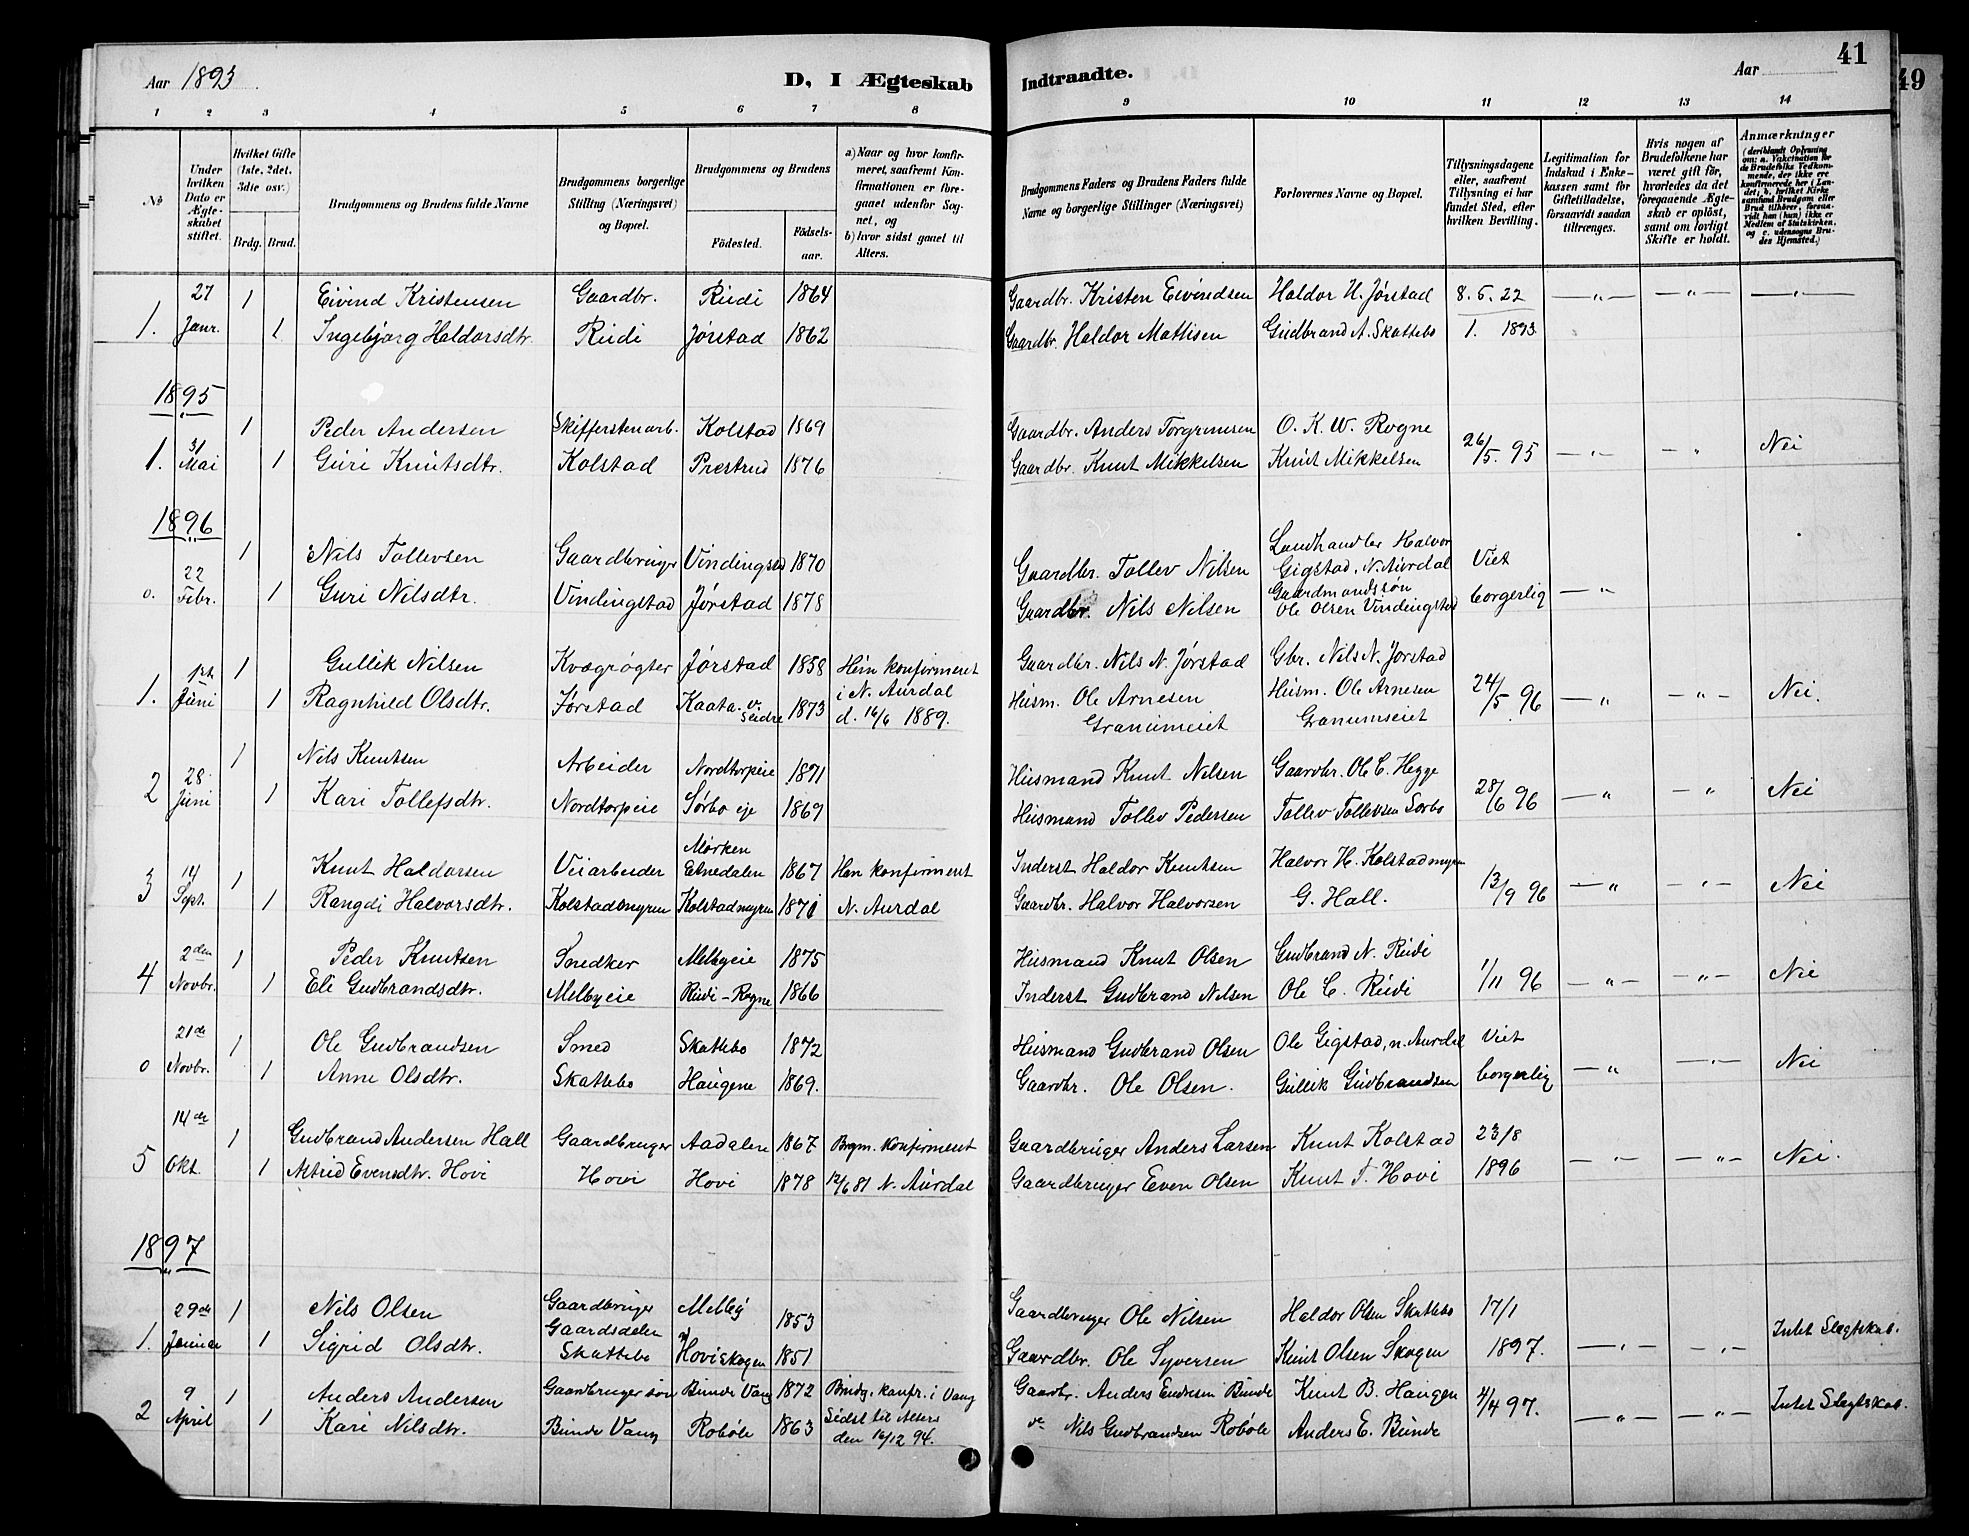 Aar 1893
D, I Ægteskab Indtraadte.
Aar
41
49
1 2 3 4 5 6 7 8 9 10 11 12 13 14
№
Under hvilken Dato er Ægteskabet stiftet.
Hvilket Gifte (1ste, 2det, 3die osv.)
Brdg. Brud.
Brudgommens og Brudens fulde Navne
Brudgommens borgerlige Stilling (Næringsvei) og Bopæl.
Brudgommens og Brudens
Fødested.
Fødselsaar.
a) Naar og hvor konfirmeret, saafremt Konfirmationen er foregaaet udenfor Sognet, og
b) hvor sidst gaaet til Alters.
Brudgommens Faders og Brudens Faders fulde Navne og borgerlige Stillinger (Næringsvei)
Forlovernes Navne og Bopæl.
Tillysningsdagene eller, saafremt Tillysning ei har fundet Sted, efter hvilken Bevilling.
Legitimation for Indskud i Enkekassen samt for Giftetilladelse, forsaavidt saadan tiltrænges.
Hvis nogen af Brudefolkene har været gift før, hvorledes da det foregaaende Ægteskab er opløst, samt om lovligt Skifte er holdt.
Anmærkninger (deriblandt Oplysning om: a. Vakcination for de Brudefolks Vedkommende, der ikke ere konfirmerede her i Landet, b. hvilket Kirkesamfund Brudgom eller Brud tilhører, forsaavidt han (hun) ikke er Medlem af Statskirken, og c. udensogns Brudes Hjemsted.)
27 1 Eivind Kristensen Gaardbr. Rudi 1864 Gaardbr. Kristen Eivindsen Haldor H. Jørstad 8. 5. 22 — " — — " — — " —
1. Janr. 1 Ingebjørg Haldorsdtr. Rudi Jørstad 1862 Gaardbr. Haldor Mattisen Gudbrand A. Skattebo 1. 1893
1895
1 Peder Andersen Skifferstenarb. Kolstad 1869 Gaardbr. Anders Torgrimsen O. K. W. Rogne
1. 31 Mai 1 Guri Knutsdtr. Kolstad Prestrud 1876 Gaardbr. Knut Mikkelsen Knut Mikkelsen 26/5. 95 — " — — " Nei
1896
1 Nils Tollevsen Gaardbruger Vindingstad 1870 Gaardbr. Tollev Nilsen Landhandler Halvor Gigstad, N. Aurdal Viet
0. 22 Febr. 1 Guri Nilsdtr. Vindingstad Jørstad 1878 Gaardbr. Nils Nilsen Gaardmandssøn Ole Olsen Vindingstad borgerlig — "
1 Gullik Nilsen Kvægrøgter Jørstad 1858 Hun konfirmeret Gaardbr. Nils N. Jørstad Gbr. Nils N. Jørstad
1. 1ste Juni 1 Ragnhild Olsdtr. Jørstad Kaata v. Slidre 1873 i N. Aurdal d. 16/6 1889. Husm. Ole Arnesen Granumeiet Husm. Ole Arnesen Granumseiet 24/5 96 — " — " — Nei.
1 Nils Knutsen Arbeider Nordtorpeie 1871 Husmand Knut Nilsen Gaardbr. Ole C. Hegge
2 28 Juni 1 Kari Tollefsdtr. Nordtorpeie Sørbo eje 1869 Husmand Tollev Pedersen Tollev Tollevsen Sørbo 28/6 96 — " — " Nei
1 Knut Haldorsen Veiarbeider Mørken Etnedalen 1867 Han konfirmeret Inderst Haldor Knutsen Halvor H. Kolstadmyren
3 14 Sept. 1 Rangdi Halvorsdtr. Kolstadmyren Kolstadmyren 1871 N. Aurdal Gaardbr. Halvor Halvorsen G. Hall. 13/9 96 — " — " — Nei
1 Peder Knutsen Snedker Melbyeie 1875 Husmand Knut Olsen Gudbrand N. Rudi
4 2den Novbr. 1 Eli Gudbrandsdtr. Melbyeie Rudi - Rogne 1866 Inderst Gudbrand Nilsen Ole C. Rudi 1/11 96 — " — — " — Nei
21de 1 Ole Gudbrandsen Smed Skattebo 1872 Husmand Gudbrand Olsen Ole Gigstad, n. Aurdal Viet
0 Novbr. 1 Anne Olsdtr. Skattebo Haugene 1869. Gaardbr. Ole Olsen. Gullik Gudbrandsen borgerlig — " — " — Nei
14de 1 Gudbrand Andersen Hall Gaardbruger Aadalen 1867 Brgm. konfirmeret Gaardbruger Anders Larsen Knut Kolstad 23/8
5 Okt. 1 Astrid Evensdtr. Hovi Hovi Hovi 1878 12/6 81 N. Aurdal Gaardbruger Even Olsen Knut T. Hovi 1896 — " — — " — Nei.
1897
29de 1 Nils Olsen Gaardbruger Melby 1853 Gaardbruger Ole Nilsen Haldor Olsen Skattebo 17/1
1. Januar 1 Sigrid Olsdtr. Gaardsdeler Skattebo Hoviskogen 1851 Gaardbr. Ole Syversen Knut Olsen Skogen 1897. — " — — " — Intet Slegtskab.
9 1 Anders Andersen Gaardbruger søn Bunde Vang 1872 Brudg. konfr. i Vang Gaardbr. Anders Endresen Bunde Knut B. Haugen 4/4 97.
2 April 1 Kari Nilsdtr. Bunde Vang Robøle 1863 Sidst til Alters den 16/12 94. Nils Gudbrandsen Robøle Anders E. Bunde — " — — " — Intet Slegtskab.